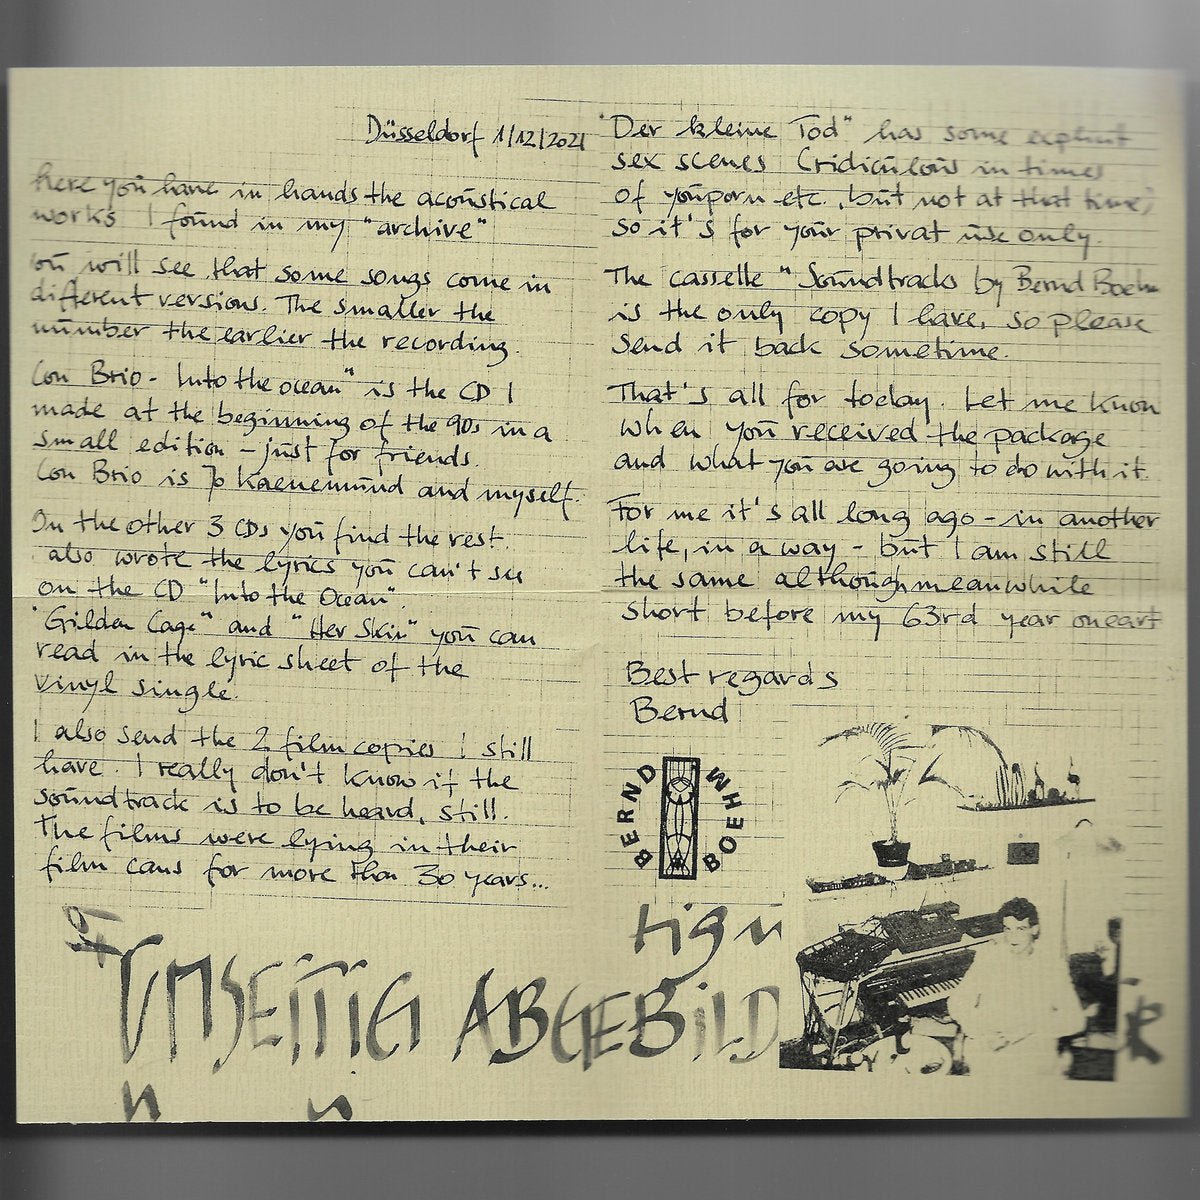 Düsseldorf 1/12/2021
here you have in hands the acoustical
works I found in my "archive"
you will see that some songs come in
different versions. The smaller the
number the earlier the recording.
Con Brio - Into the ocean" is the CD I
made at the beginning of the 90s in a
small edition - just for friends.
Con Brio is Jo Kaenemund and myself.
On the other 3 CDs you find the rest.
also wrote the lyrics you can't see
on the CD "Into the Ocean".
"Gilden Cage" and "Her Skin" you can
read in the lyric sheet of the
vinyl single.
I also send the 2 film copies I still
have. I really don't know if the
soundtrack is to be heard, still.
The films were lying in their
film cans for more than 30 years...
"Der kleine Tod" has some explicit
sex scenes (ridiculous in times
of youporn etc., but not at that time)
so it's for your privat use only.
The casselle "Soundtracks by Bernd Boehm
is the only copy I have, so please
send it back sometime.
That's all for today. Let me know
when you received the package
and what you are going to do with it.
For me it's all long ago - in another
life, in a way - but I am still
the same although meanwhile
short before my 63rd year on eart
Best regards
Bernd
BERND BOEHM
UMSEITIG ABGEBILD